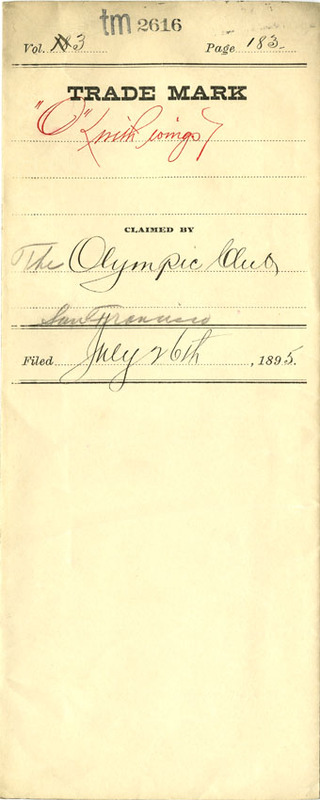 tm 2616
Vol. 3 Page 183
TRADE MARK
"O" (with wings)
CLAIMED BY
The Olympic Club,
San Francisco
Filed July 26th, 1895.